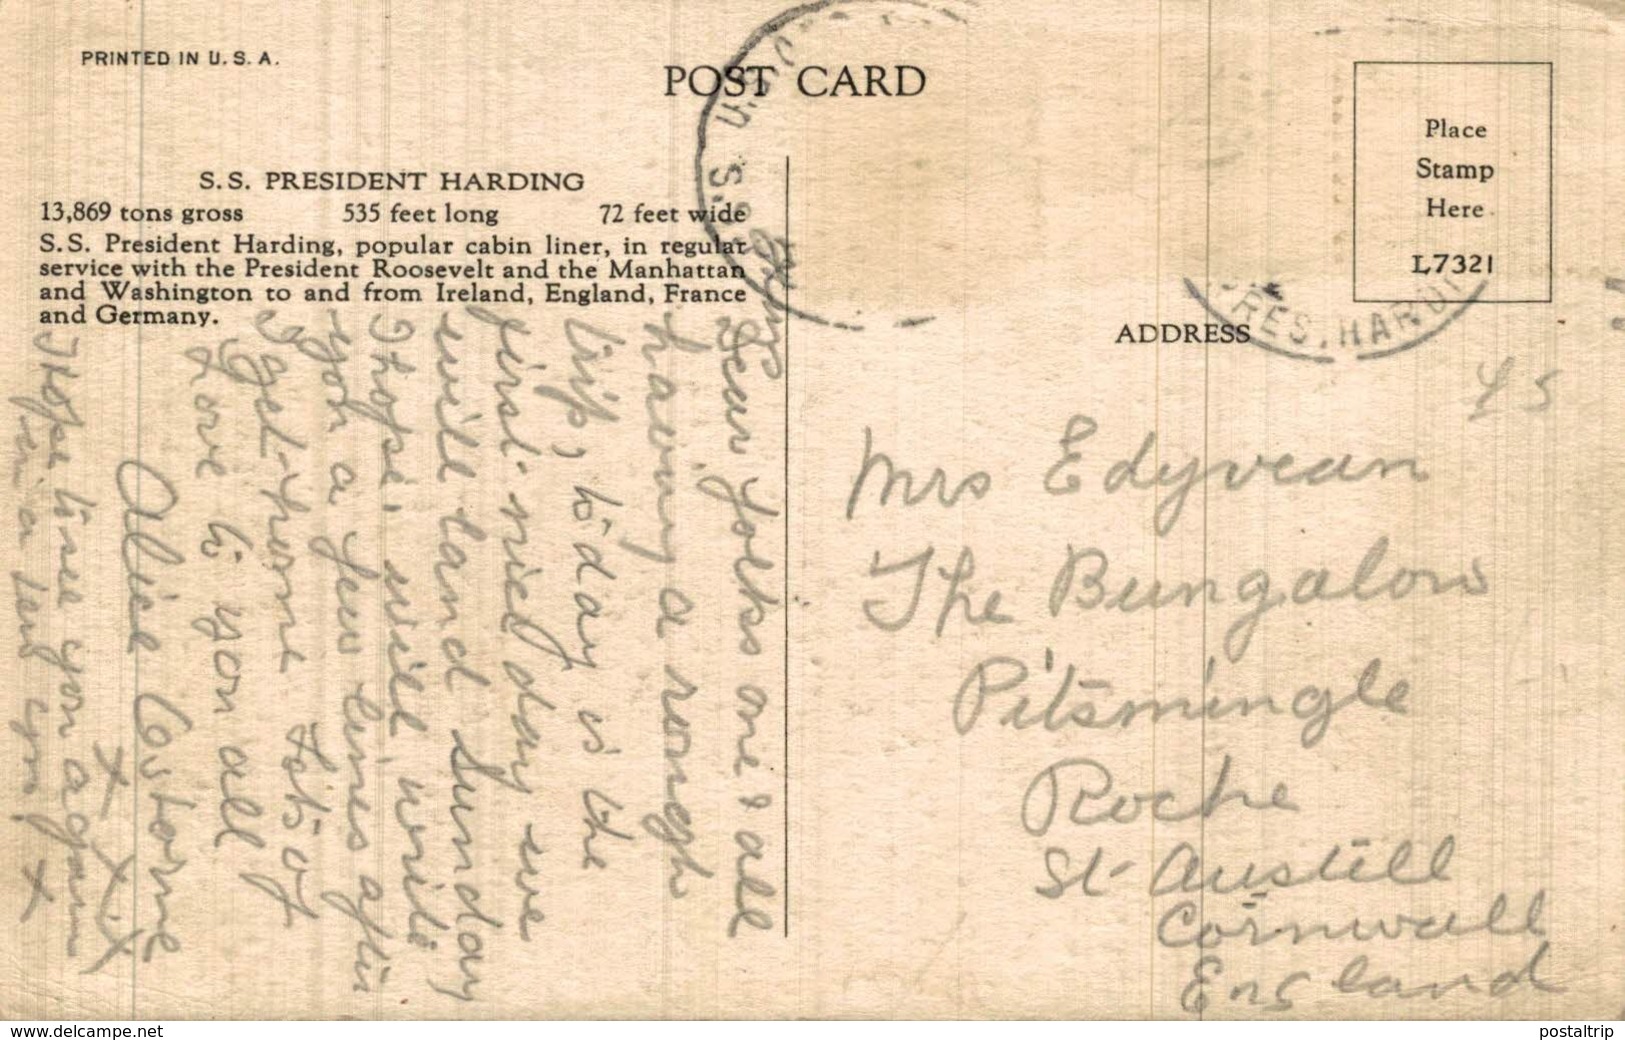 PRINTED IN U.S.A.
POST CARD
S.S. PRESIDENT HARDING
13,869 tons gross 535 feet long 72 feet wide
S.S. President Harding, popular cabin liner, in regular
service with the President Roosevelt and the Manhattan
and Washington to and from Ireland, England, France
and Germany.
Place
Stamp
Here
L7321
ADDRESS
PRES. HARDI
U.S.
Dear folks one & all
having a rough
trip, to day is the
first nice day we
will land Sunday
I hope, will write
you a few lines after
I get home lots of
love to you all
Alice Osborne
x x x x
I Hope to see you again
in a few yrs x
Mrs Edyvean
The Bungalow
Pitsmingle
Roche
St Austell
Cornwall
England
www.delcampe.net
postaltrip